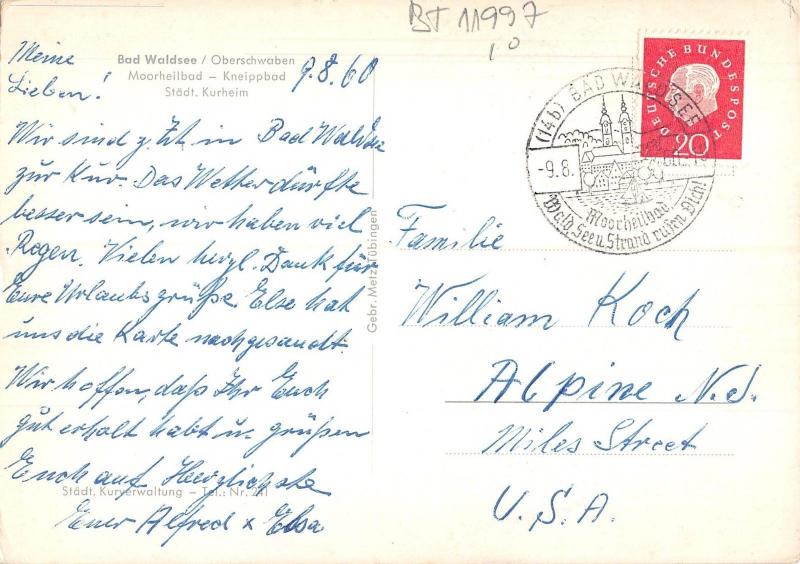 BT 11997
10
Bad Waldsee / Oberschwaben
Moorheilbad – Kneippbad
Städt. Kurheim
9.8.60
Meine
Lieben!
Wir sind z. Zt. in Bad Waldsee
zur Kur. Das Wetter dürfte
besser sein, wir haben viel
Regen. Vielen herzl. Dank für
Eure Urlaubsgrüße. Else hat
uns die Karte nachgesandt.
Wir hoffen, daß Ihr Euch
gut erholt habt u. grüßen
Euch auf Herzlichste
Städt. Kurverwaltung – Tel.: Nr. 241
Euer Alfred & Elsa
Gebr. Metz, Tübingen
DEUTSCHE BUNDESPOST
20
(14b) BAD WALDSEE
-9.8.
Moorheilbad
Wald, See u. Strand rufen Dich!
Familie
William Koch
Alpine N.J.
Miles Street
U.S.A.